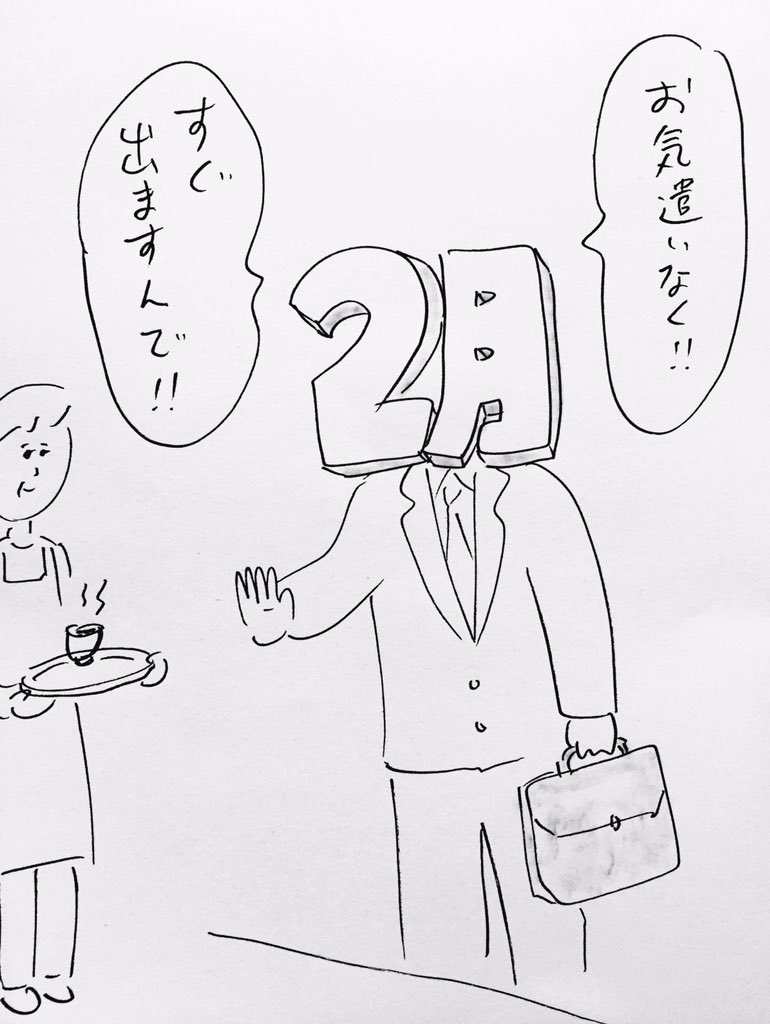 お気遣いなく!!
2月
すぐ
出ますんで!!